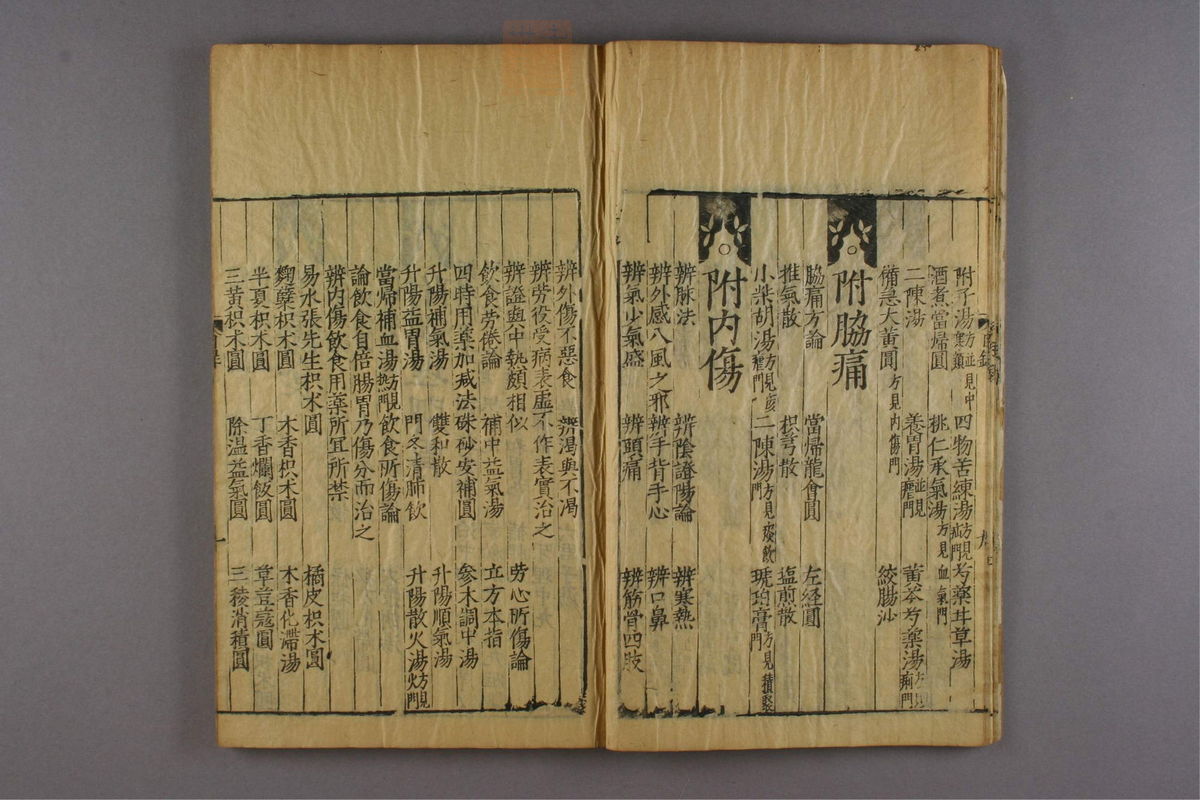 附子湯 方並見中寒類 四物苦練湯 方見疝門 芍藥甘草湯
酒煮當歸圓 桃仁承氣湯 方見血氣門
二陳湯 養胃湯 並見瘧門 黃芩芍藥湯 方見痢門
備急大黃圓 方見內傷門 絞腸沙
附脇痛
脇痛方論 當歸龍會圓 左經圓
推氣散 枳芎散 塩煎散
小柴胡湯 方見瘧門 二陳湯 方見痰飲門 琥珀膏 方見積聚門
附內傷
辨脉法 辨陰證陽論 辨寒熱
辨外感八風之邪 辨手背手心 辨口鼻
辨氣少氣盛 辨頭痛 辨筋骨四肢
辨外傷不惡食 辨渴與不渴
辨勞役受病表虛不作表實治之
辨證與中熱頗相似 勞心所傷論
飲食勞倦論 補中益氣湯 立方本指
四時用藥加减法 硃砂安補圓 參木調中湯
升陽補氣湯 雙和散 升陽順氣湯
升陽益胃湯 門冬清肺飲 升陽散火湯 方見火門
當歸補血湯 方見熱門 飲食所傷論
論飲食自倍腸胃乃傷分而治之
辨內傷飲食用藥所宜所禁
易水張先生枳朮圓 橘皮枳朮圓
麴蘖枳朮圓 木香枳朮圓 木香化滯湯
半夏枳朮圓 丁香爛飯圓 草荳蔻圓
三黃枳朮圓 除温益氣圓 三稜消積圓